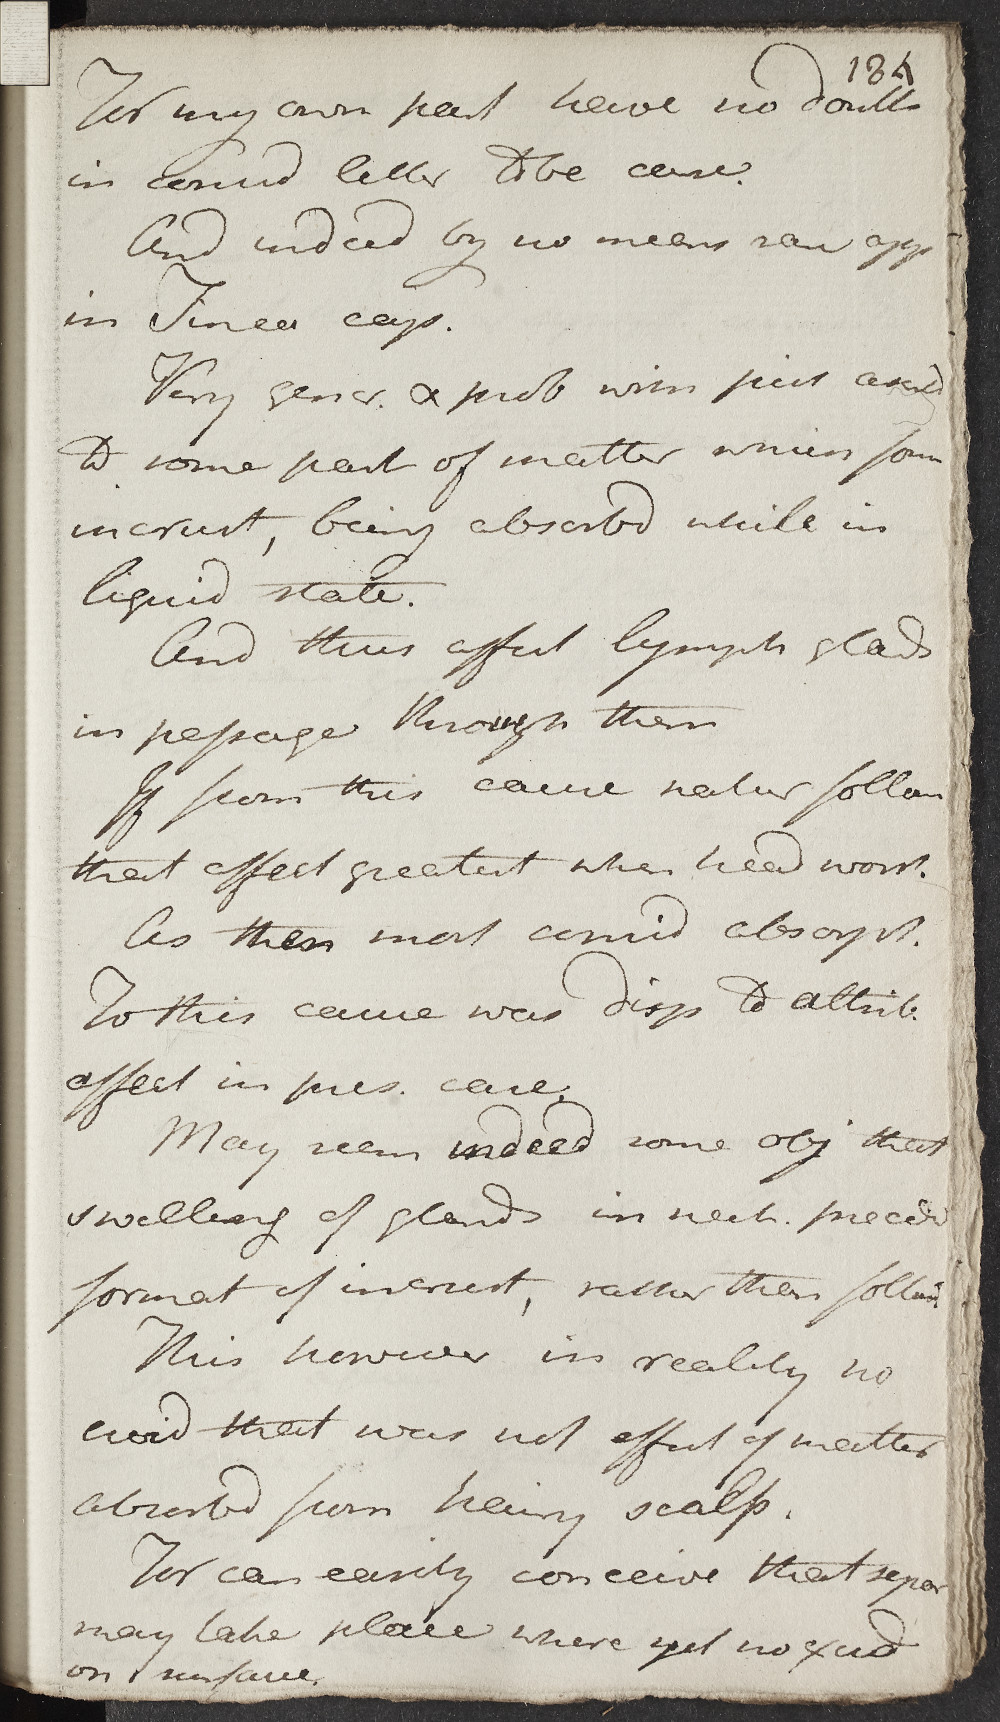 184
For my own part have no doubt
in consid latter to be case.
And indeed by no means rare app
in Tinea cap.
Very gener. & prob with just
to some part of matter which form
incrust, being absorbd while in
liquid state.
And thus affect lymph glands
in passage through them
If from this cause natur follow
that affect greatest when head worst.
As then most consid absorpt.
To this cause was disp to attrib.
affect in pres. case.
May seem indeed some obj that
swelling of glands in neck. preced
format of incrust, rather than follow
This however in reality no
evid that was not effect of matter
absorbd from hairy scalp.
For can easily conceive that separ
may take place where yet no exud
on surface.